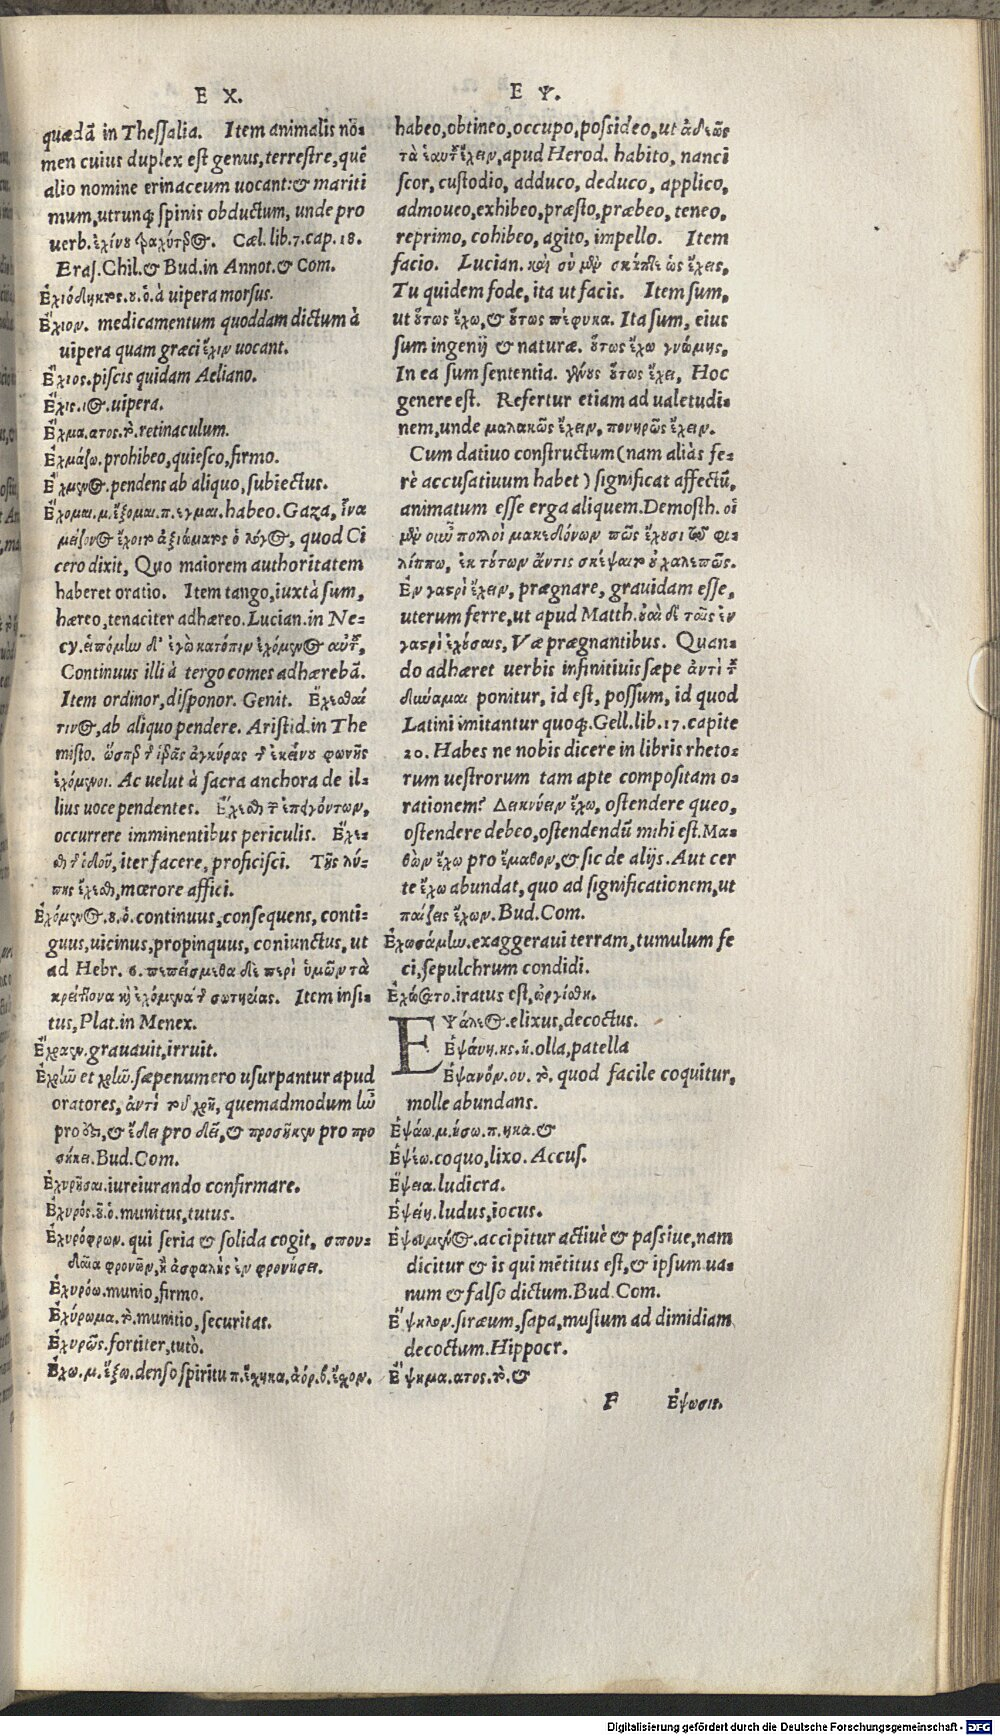 E X.
quædã in Thessalia. Item animalis nõ-
men cuius duplex est genus, terrestre, quẽ
alio nomine erinaceum uocant: & mariti
mum, utrunq; spinis obductum, unde pro
uerb. ἐχίνου Cæl. lib. 7. cap. 18.
Eras. Chil. & Bud. in Annot. & Com.
Ἐχιόδηκτος. ου. ὁ. à uipera morsus.
Ἔχιον. medicamentum quoddam dictum à
uipera quam græci ἔχιν uocant.
Ἔχιος. piscis quidam Aeliano.
Ἔχις. ιος. uipera.
Ἔχμα. ατος. τὸ. retinaculum.
Ἐχμάζω. prohibeo, quiesco, firmo.
Ἔχμενος. pendens ab aliquo, subiectus.
Ἔχομαι. μ. ἕξομαι. π. εγμαι. habeo. Gaza, ἵνα
μείζονος ἔχοιτο ἀξιώματος ὁ λόγος, quod Ci
cero dixit, Quo maiorem authoritatem
haberet oratio. Item tango, iuxtà sum,
hæreo, tenaciter adhæreo. Lucian. in Ne-
cy. εἱπόμην δ' ἐγὼ κατόπιν ἐχόμενος αὐτοῦ,
Continuus illi à tergo comes adhærebã.
Item ordinor, disponor. Genit. Ἔχεσθαί
τινος, ab aliquo pendere. Aristid. in The
misto. ὥσπερ τῆς ἱερᾶς ἀγκύρας τῆς ἐκείνου φωνῆς
ἐχόμενοι. Ac uelut à sacra anchora de il-
lius uoce pendentes. Ἔχεσθαι τῶν ἐπειγόντων,
occurrere imminentibus periculis. Ἔχε-
σθαι τῆς ὁδοῦ, iter facere, proficisci. Τῆς λύ-
πης ἔχεσθαι, mœrore affici.
Ἐχόμενος. ου. ὁ. continuus, consequens, conti-
guus, uicinus, propinquus, coniunctus, ut
ad Hebr. 6. πεπείσμεθα δὲ περὶ ὑμῶν τὰ
κρείττονα καὶ ἐχόμενα τῆς σωτηρίας. Item insi-
tus, Plat. in Menex.
Ἔχραεν. grauauit, irruit.
Ἐχρῶ et χρῶ. sæpenumero usurpantur apud
oratores, ἀντὶ τοῦ χρῆ, quemadmodum
pro & ἔδει pro δεῖ, & προσῆκεν pro προ
σήκει. Bud. Com.
Ἐχυρῦσαι. iureiurando confirmare.
Ἐχυρός. οῦ. ὁ. munitus, tutus.
Ἐχυρόφρων. qui seria & solida cogit, σπου-
δαῖα φρονῶν, ἢ ἀσφαλὴς ἐν φρονήσει.
Ἐχυρόω. munio, firmo.
Ἐχύρωμα. τὸ. munitio, securitas.
Ἐχυρῶς. fortiter, tutò.
Ἔχω. μ. ἕξω. denso spiritu π. ἔχηκα. ἀόρ. β. ἔχον.
E Ψ.
habeo, obtineo, occupo, possideo, ut ἀδεῶς
τὰ ἑαυτοῦ ἔχειν, apud Herod. habito, nanci
scor, custodio, adduco, deduco, applico,
admoueo, exhibeo, præsto, præbeo, teneo,
reprimo, cohibeo, agito, impello. Item
facio. Lucian. καὶ σὺ μὲν σκάπτε ὡς ἔχεις,
Tu quidem fode, ita ut facis. Item sum,
ut οὕτως ἔχω, & οὕτως πέφυκα. Ita sum, eius
sum ingenij & naturæ. οὕτως ἔχω γνώμης,
In ea sum sententia. γένους οὕτως ἔχει, Hoc
genere est. Refertur etiam ad ualetudi-
nem, unde μαλακῶς ἔχειν, πονηρῶς ἔχειν.
Cum datiuo constructum (nam aliàs fe-
rè accusatiuum habet) significat affectũ,
animatum esse erga aliquem. Demosth. οἱ
μὲν οὖν πολλοὶ μακεδόνων πῶς ἔχουσι τῷ φι-
λίππῳ, ἐκ τούτων ἄν τις σκέψαιτο οὐ χαλεπῶς.
Ἐν γαστρὶ ἔχειν, prægnare, grauidam esse,
uterum ferre, ut apud Matth. οὐαὶ δὲ ταῖς ἐν
γαστρὶ ἐχούσαις, Væ prægnantibus. Quan-
do adhæret uerbis infinitiuis sæpe ἀντὶ τοῦ
δύναμαι ponitur, id est, possum, id quod
Latini imitantur quoq;. Gell. lib. 17. capite
20. Habes ne nobis dicere in libris rheto-
rum uestrorum tam apte compositam o-
rationem? Δεικνύειν ἔχω, ostendere queo,
ostendere debeo, ostendendũ mihi est. Μα-
θὼν ἔχω pro ἔμαθον, & sic de alijs. Aut cer
te ἔχω abundat, quo ad significationem, ut
παίζεις ἔχων. Bud. Com.
Ἐχωσάμην. exaggeraui terram, tumulum fe
ci, sepulchrum condidi.
Ἐχώσατο. iratus est, ὠργίσθη.
ΕΨάλεος. elixus, decoctus.
Ἐψάνη. ης. ἡ. olla, patella
Ἐψανόν. ου. τὸ. quod facile coquitur,
molle abundans.
Ἐψάω. μ. ήσω. π. ηκα. &
Ἐψέω. coquo, lixo. Accus.
Ἔψεια. ludicra.
Ἐψείη. ludus, iocus.
Ἐψευσμένος. accipitur actiuè & passiue, nam
dicitur & is qui mẽtitus est, & ipsum ua-
num & falso dictum. Bud. Com.
Ἔψηλον. siræum, sapa, mustum ad dimidiam
decoctum. Hippocr.
Ἔψημα. ατος. τὸ. &
F Ἐψωσις.
Digitalisierung gefördert durch die Deutsche Forschungsgemeinschaft - DFG